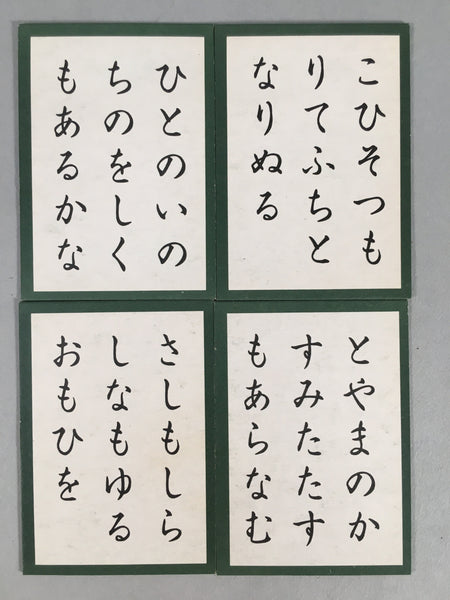 こひそつも
りてふちと
なりぬる
ひとのいの
ちのをしく
もあるかな
とやまのか
すみたたす
もあらなむ
さしもしら
しなもゆる
おもひを